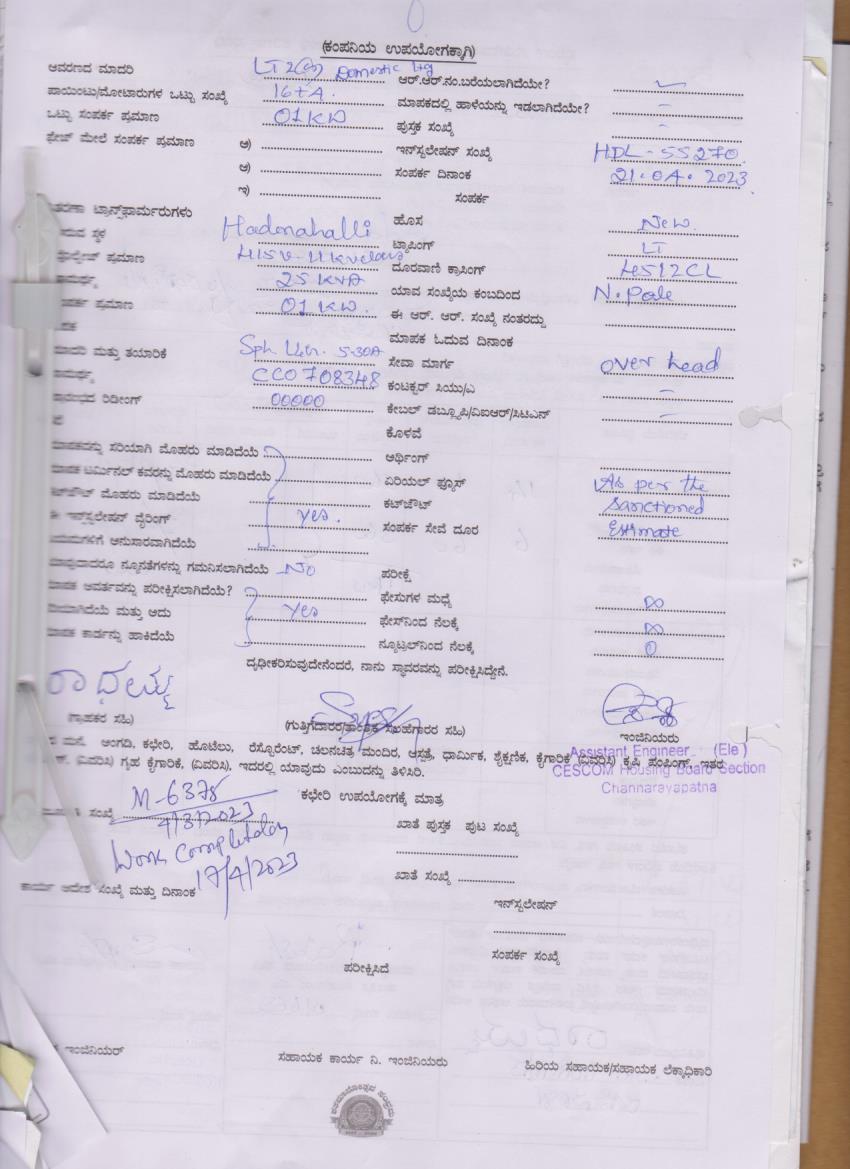 (ಕಂಪನಿಯ ಉಪಯೋಗಕ್ಕಾಗಿ)
ಆವರಣದ ಮಾದರಿ LT 2(a) Domestic ltg ಆರ್.ಆರ್.ನಂ.ಬರೆಯಲಾಗಿದೆಯೇ?
ಪಾಯಿಂಟು/ಮೋಟಾರುಗಳ ಒಟ್ಟು ಸಂಖ್ಯೆ 16+A. ಮಾಪಕದಲ್ಲಿ ಹಾಳೆಯನ್ನು ಇಡಲಾಗಿದೆಯೇ? –
ಒಟ್ಟು ಸಂಪರ್ಕ ಪ್ರಮಾಣ 01 KW ಪುಸ್ತಕ ಸಂಖ್ಯೆ –
ಫೇಜ್ ಮೇಲೆ ಸಂಪರ್ಕ ಪ್ರಮಾಣ ಅ) ಇನ್‌ಸ್ಟಲೇಷನ್ ಸಂಖ್ಯೆ HDL-55270.
ಆ) ಸಂಪರ್ಕ ದಿನಾಂಕ 21.04.2023
ಇ) ಸಂಪರ್ಕ
ತರಣಾ ಟ್ರಾನ್ಸ್‌ಫಾರ್ಮರುಗಳು ಹೊಸ New.
ರುವ ಸ್ಥಳ Hadonahalli ಟ್ಯಾಪಿಂಗ್ LT
ಪ್ರಮಾಣ ದೂರವಾಣಿ ಕ್ರಾಸಿಂಗ್
ಮರ್ಥ್ಯ 25 KVA ಯಾವ ಸಂಖ್ಯೆಯ ಕಂಬದಿಂದ N.Pole
ಪರ್ಕ ಪ್ರಮಾಣ 01 KW. ಈ ಆರ್. ಆರ್. ಸಂಖ್ಯೆ ನಂತರದ್ದು
ಮಾಪಕ ಓದುವ ದಿನಾಂಕ
ಮಾದರಿ ಮತ್ತು ತಯಾರಿಕೆ 5-30A ಸೇವಾ ಮಾರ್ಗ over head
ಮರ್ಥ್ಯ CC0708348 ಕಂಟಕ್ಟರ್ ಸಿಯು/ಎ –
ರಿಡೀಂಗ್ 00000 ಕೇಬಲ್ ಡಬ್ಲ್ಯೂಪಿ/ವಿಐಆರ್/ಸಿಟಿಎನ್ –
ಕೊಳವೆ
ಮಾಪಕವನ್ನು ಸರಿಯಾಗಿ ಮೊಹರು ಮಾಡಿದೆಯೆ ಅರ್ಥಿಂಗ್
ಮಾಪಕ ಟರ್ಮಿನಲ್ ಕವರನ್ನು ಮೊಹರು ಮಾಡಿದೆಯೆ ಏರಿಯಲ್ ಫ್ಯೂಸ್ As per the
ಕಟ್‌ಔಟ್ ಮೊಹರು ಮಾಡಿದೆಯೆ ಕಟ್‌ಔಟ್ Sanctioned
ಈ ಇನ್‌ಸ್ಟಲೇಷನ್ ವೈರಿಂಗ್ yes. ಸಂಪರ್ಕ ಸೇವೆ ದೂರ Estimate
ಯಮಗಳಿಗೆ ಅನುಸಾರವಾಗಿದೆಯೆ
ಯಾವುದಾದರೂ ನ್ಯೂನತೆಗಳನ್ನು ಗಮನಿಸಲಾಗಿದೆಯೆ No ಪರೀಕ್ಷೆ
ಮಾಪಕ ಆವರ್ತವನ್ನು ಪರೀಕ್ಷಿಸಲಾಗಿದೆಯೆ? ಫೇಸುಗಳ ಮಧ್ಯೆ ∞
ಯಾಗಿದೆಯೆ ಮತ್ತು ಅದು yes ಫೇಸ್‌ನಿಂದ ನೆಲಕ್ಕೆ ∞
ಮಾಪಕ ಕಾರ್ಡನ್ನು ಹಾಕಿದೆಯೆ ನ್ಯೂಟ್ರಲ್‌ನಿಂದ ನೆಲಕ್ಕೆ 0
ದೃಢೀಕರಿಸುವುದೇನೆಂದರೆ, ನಾನು ಸ್ಥಾವರವನ್ನು ಪರೀಕ್ಷಿಸಿದ್ದೇನೆ.
ರಾಧಮ್ಮ
(ಗ್ರಾಹಕರ ಸಹಿ) (ಗುತ್ತಿಗೆದಾರರ/ತಾಂತ್ರಿಕ ಸಲಹೆಗಾರರ ಸಹಿ) ಇಂಜಿನಿಯರು
ಮನೆ, ಅಂಗಡಿ, ಕಛೇರಿ, ಹೊಟೆಲು, ರೆಸ್ಟೋರೆಂಟ್, ಚಲನಚಿತ್ರ ಮಂದಿರ, ಆಸ್ಪತ್ರೆ, ಧಾರ್ಮಿಕ, ಶೈಕ್ಷಣಿಕ, ಕೈಗಾರಿಕೆ (ವಿವರಿಸಿ) ಕೃಷಿ ಪಂಪಿಂಗ್, ಇತರ
(ವಿವರಿಸಿ) ಗೃಹ ಕೈಗಾರಿಕೆ, (ವಿವರಿಸಿ). ಇದರಲ್ಲಿ ಯಾವುದು ಎಂಬುದನ್ನು ತಿಳಿಸಿರಿ.
Assistant Engineer (Ele)
CESCOM Housing Board Section
Channarayapatna
M-6378 ಕಛೇರಿ ಉಪಯೋಗಕ್ಕೆ ಮಾತ್ರ
ಸಂಖ್ಯೆ 4/3/2023 ಖಾತೆ ಪುಸ್ತಕ ಪುಟ ಸಂಖ್ಯೆ
Work Completed on
17/4/2023 ಖಾತೆ ಸಂಖ್ಯೆ
ಕಾರ್ಯ ಆದೇಶ ಸಂಖ್ಯೆ ಮತ್ತು ದಿನಾಂಕ
ಇನ್‌ಸ್ಟಲೇಷನ್
ಸಂಪರ್ಕ ಸಂಖ್ಯೆ
ಪರೀಕ್ಷಿಸಿದೆ
ಇಂಜಿನಿಯರ್ ಸಹಾಯಕ ಕಾರ್ಯ ನಿ. ಇಂಜಿನಿಯರು ಹಿರಿಯ ಸಹಾಯಕ/ಸಹಾಯಕ ಲೆಕ್ಕಾಧಿಕಾರಿ